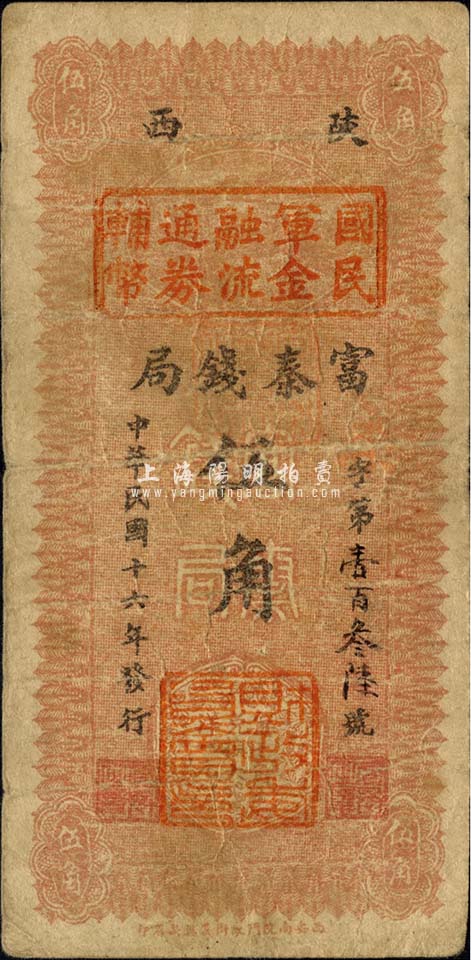 伍角
伍角
陝西
國民軍金融流通券輔幣
富秦錢局
伍角
字第壹百叁陸號
中華民國十六年發行
上海陽明拍賣
www.yangmingauction.com
伍角
伍角